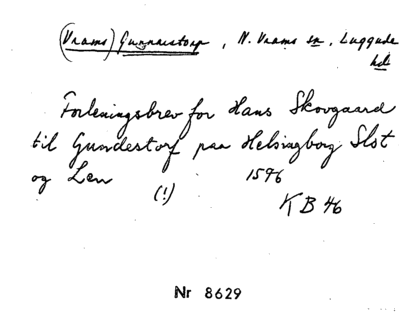 (Vrams) Gunnarstorp, N. Vrams sn, Luggude
hd
Forleningsbrev for Hans Skovgaard
til Gundestorf paa Helsingborg Slot
og Len 1596
(!) KB 46
Nr 8629